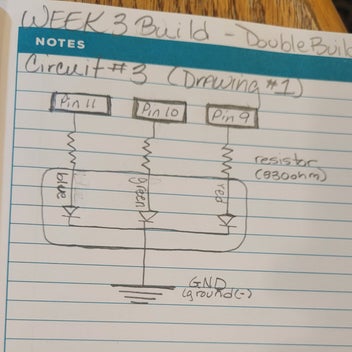 WEEK 3 Build - Double Buil
NOTES
Circuit #3 (Drawing #1)
Pin 11 Pin 10 Pin 9
resistor
(930ohm)
blue green red
GND
(ground(-)